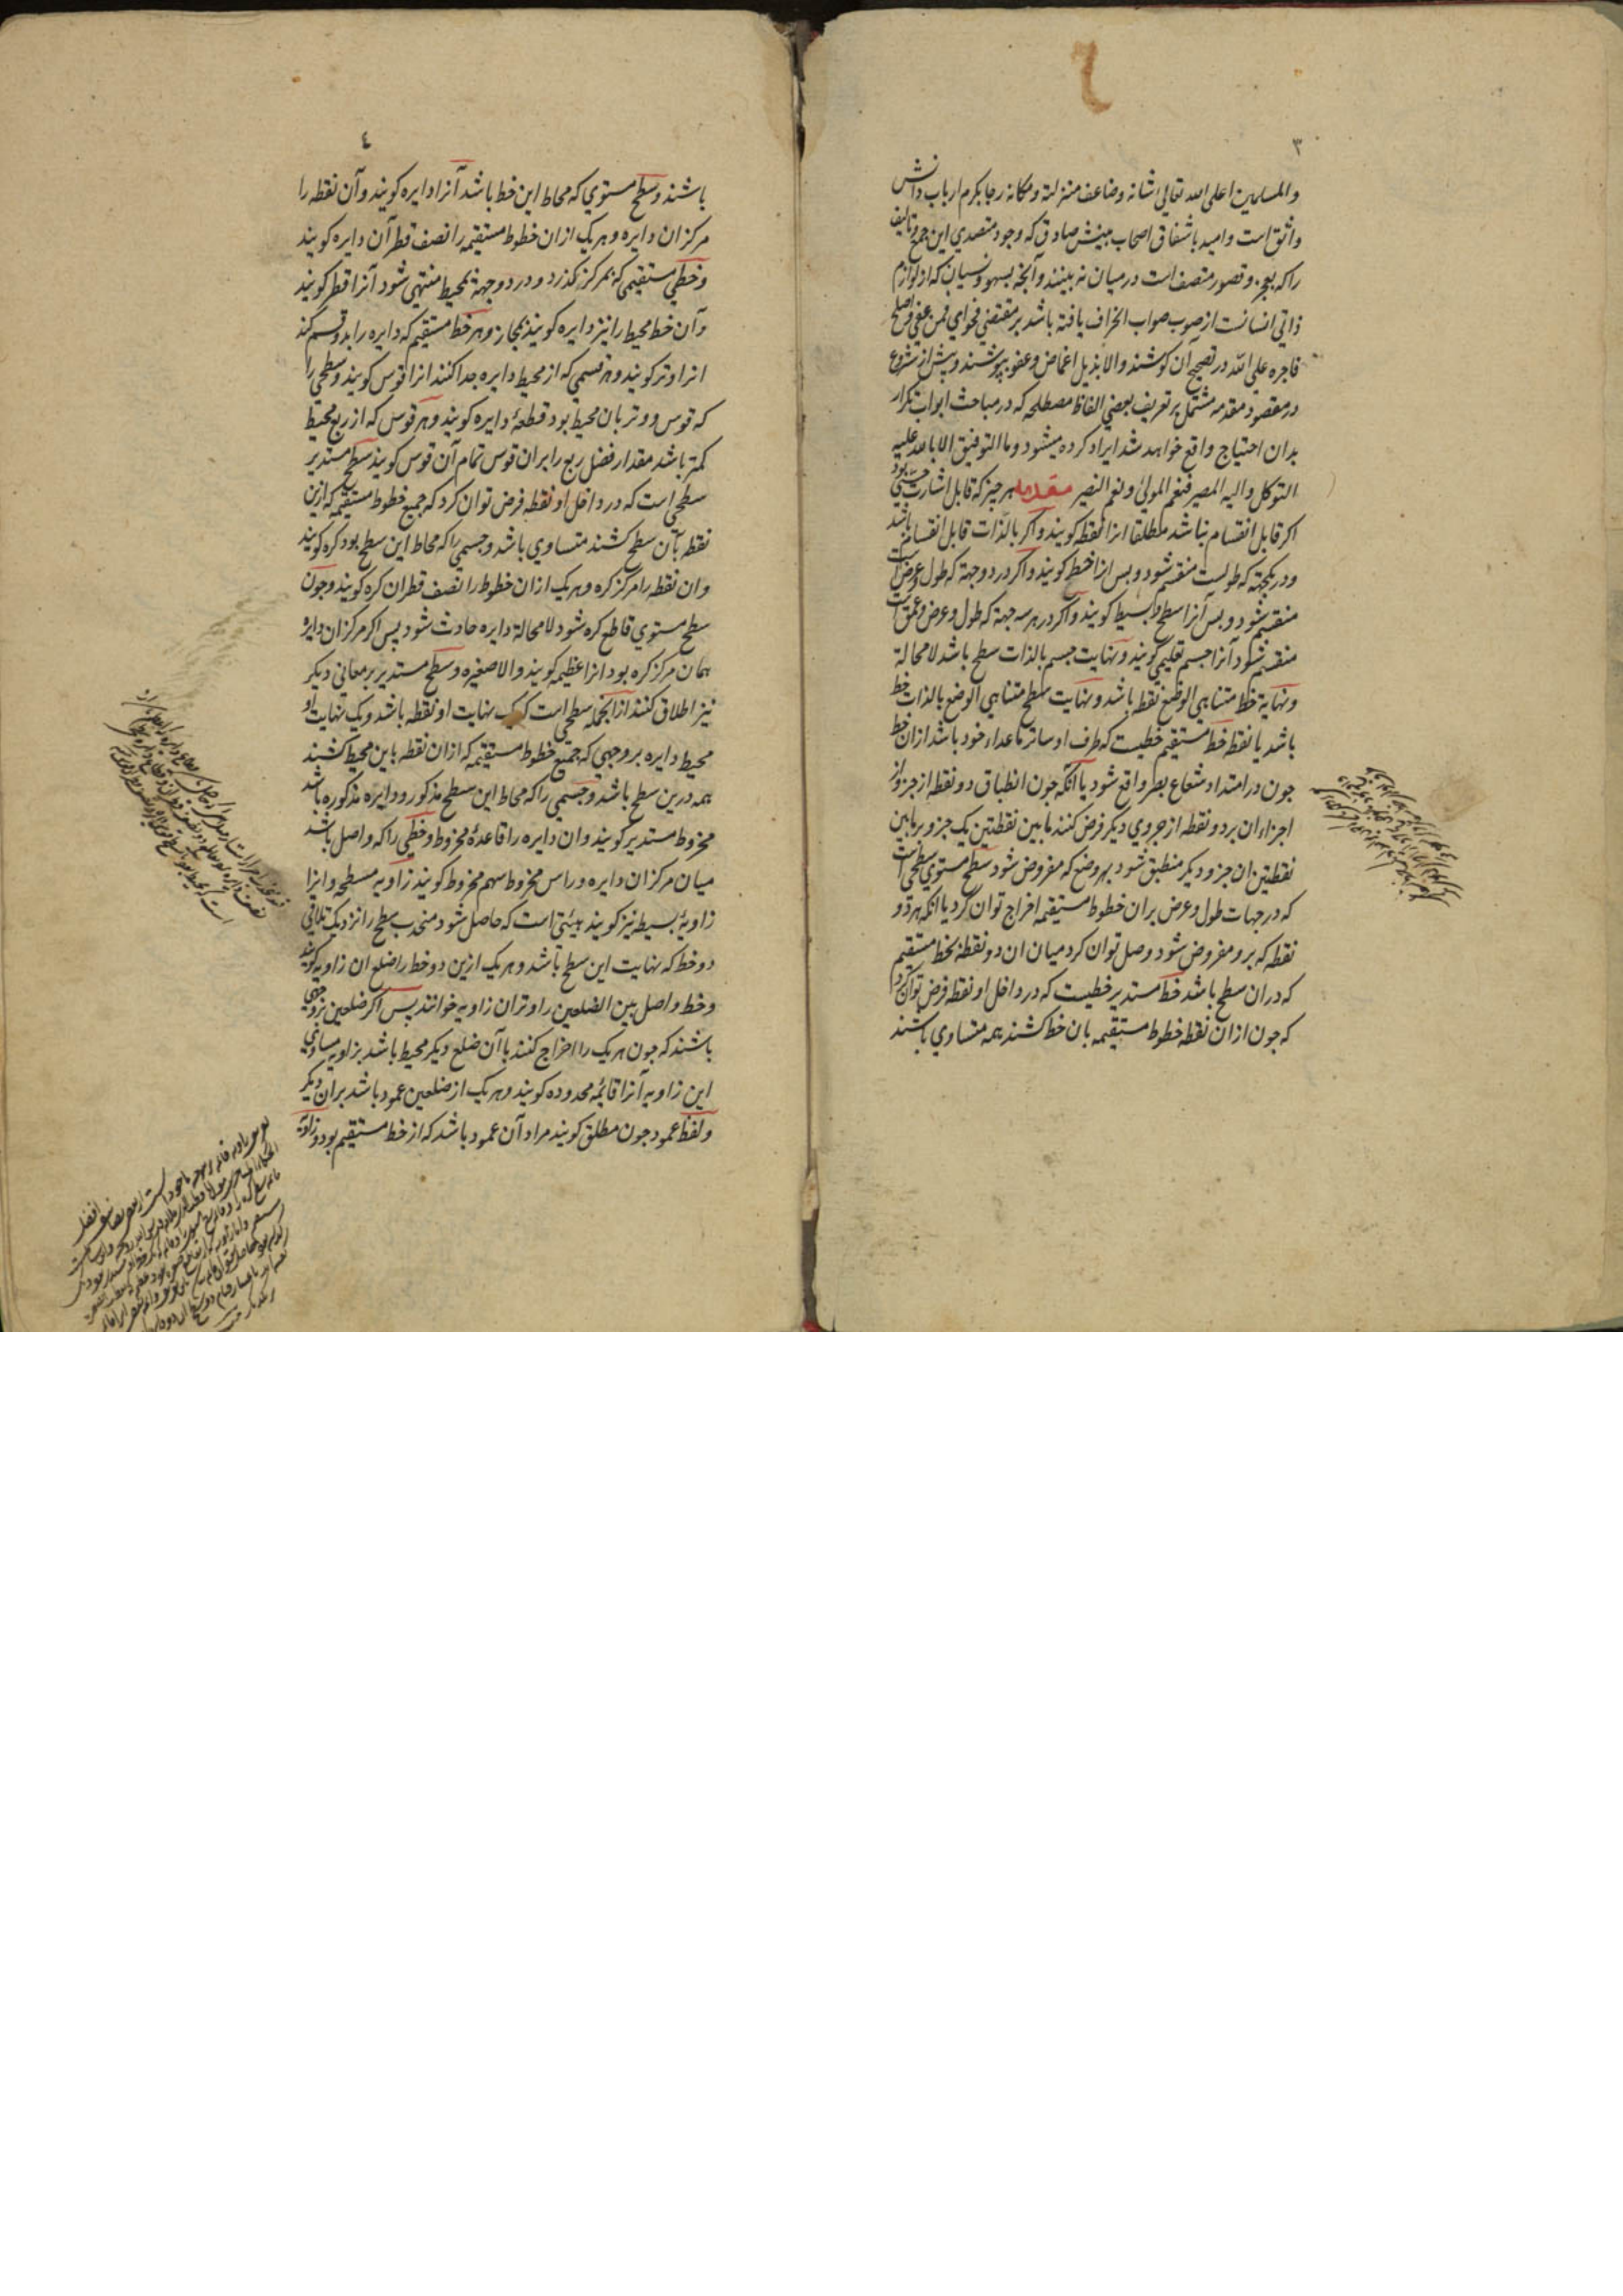 ٣
والمسلمین اعلی الله تعالی شانه وضاعف منزلته ومکانه رجا بکرم ارباب دانش
واثق است وامید باشفاق اصحاب بینش صادق که وجود متصدی این جمع وتالیف
را که بعجز وقصور متصف است در میان نه بینند وآنچه بسهو ونسیان که از لوازم
ذاتی انسانست از صوب صواب انحراف یافته باشد بر مقتضی فحوای فمن عفی واصلح
فاجره علی الله در تصحیح آن کوشند والا بذیل اغماض وعفو بپوشند وپیش از شروع
در مقصود مقدمه مشتمل بر تعریف بعضی الفاظ مصطلحه که در مباحث ابواب تکرار
بدان احتیاج واقع خواهد شد ایراد کرده میشود وما التوفیق الا بالله علیه
التوکل والیه المصیر فنعم المولی ونعم النصیر مقدمه هر چیز که قابل اشارت حسّی بود
اکر قابل انقسام نباشد مطلقا انرا نقطه کویند واکر بالذات قابل انقسام باشد
ودر یکجهة که طولست منقسم شود وبس انرا خط کویند واکر در دو جهة که طول وعرض است
منقسم شود وبس آنرا سطح وبسیط کویند واکر در هر سه جهة که طول وعرض وعمق است
منقسم شود آنرا جسم تعلیمی کویند ونهایت جسم بالذات سطح باشد لا محالة
ونهایة خط متناهی الوضع نقطه باشد ونهایت سطح متناهی الوضع بالذات خط
باشد یا نقطه خط مستقیم خطیست که طرف او ساتر ما عداء خود باشد ازان خط
چون در امتداد شعاع بصر واقع شود یا آنکه چون انطباق دو نقطه از جزو از
اجزاء ان بر دو نقطه از جزوی دیکر فرض کنند ما بین نقطتین یک جزو بر ما بین
نقطتین ان جزو دیکر منطبق شود بهر وضع که مفروض شود سطح مستوی سطحی است
که در جهات طول وعرض بران خطوط مستقیمه اخراج توان کرد یا انکه هر دو
نقطه که برو مفروض شود وصل توان کرد میان ان دو نقطه بخط مستقیم
که دران سطح باشد خط مستدیر خطیست که در داخل او نقطه فرض توان کرد
که چون ازان نقطه خطوط مستقیمه بان خط کشند همه متساوی باشند
٤
باشند وسطح مستوی که محاط این خط باشد آنرا دایره کویند وآن نقطه را
مرکز ان دایره وهر یک ازان خطوط مستقیمه را نصف قطر آن دایره کویند
وخطی مستقیمی که بمرکز کذرد ودر دو جهة بمحیط منتهی شود آنرا قطر کویند
وآن خط محیط را نیز دایره کویند بمجاز وهر خط مستقیم که دایره را بدو قسم کند
انرا وتر کویند وهر قسمی که از محیط دایره جدا کنند انرا قوس کویند وسطحی را
که قوس ووتر بان محیط بود قطعهٔ دایره کویند وهر قوس که از ربع محیط
کمتر باشد مقدار فضل ربع را بران قوس تمام آن قوس کویند سطح مستدیر
سطحی است که در داخل او نقطه فرض توان کرد که جمیع خطوط مستقیمه که ازین
نقطه بآن سطح کشند متساوی باشد وجسمی را که محاط این سطح بود کره کویند
وان نقطه را مرکز کره وهر یک ازان خطوط را نصف قطر ان کره کویند وچون
سطح مستوی قاطع کره شود لا محالة دایره حادث شود پس اکر مرکز ان دایره
همان مرکز کره بود انرا عظیمه کویند والا صغیره وسطح مستدیر بر معانی دیکر
نیز اطلاق کنند ازانجمله سطحی است که یک نهایت او نقطه باشد ویک نهایت او
محیط دایره بر وجهی که جمیع خطوط مستقیمه که ازان نقطه باین محیط کشند
همه درین سطح باشد وجسمی را که محاط این سطح مذکور ودایره مذکوره باشد
مخروط مستدیر کویند وان دایره را قاعدهٔ مخروط وخطی را که واصل باشد
میان مرکز ان دایره وراس مخروط سهم مخروط کویند زاویه مسطحه وانرا
زاویهٔ بسیطه نیز کویند هیئتی است که حاصل شود منحدب سطح را نزدیک تلاقی
دو خط که نهایت این سطح باشد وهر یک ازین دو خط را ضلع ان زاویه کویند
وخط واصل بین الضلعین را وتر ان زاویه خوانند پس اکر ضلعین بر وجهی
باشند که چون هر یک را اخراج کنند با آن ضلع دیکر محیط باشد بزاویه مساوی
این زاویه آنرا قائمه محدوده کویند وهر یک از ضلعین عمود باشد بران دیکر
ولفظ عمود چون مطلق کویند مراد آن عمود باشد که از خط مستقیم بود وزاویه